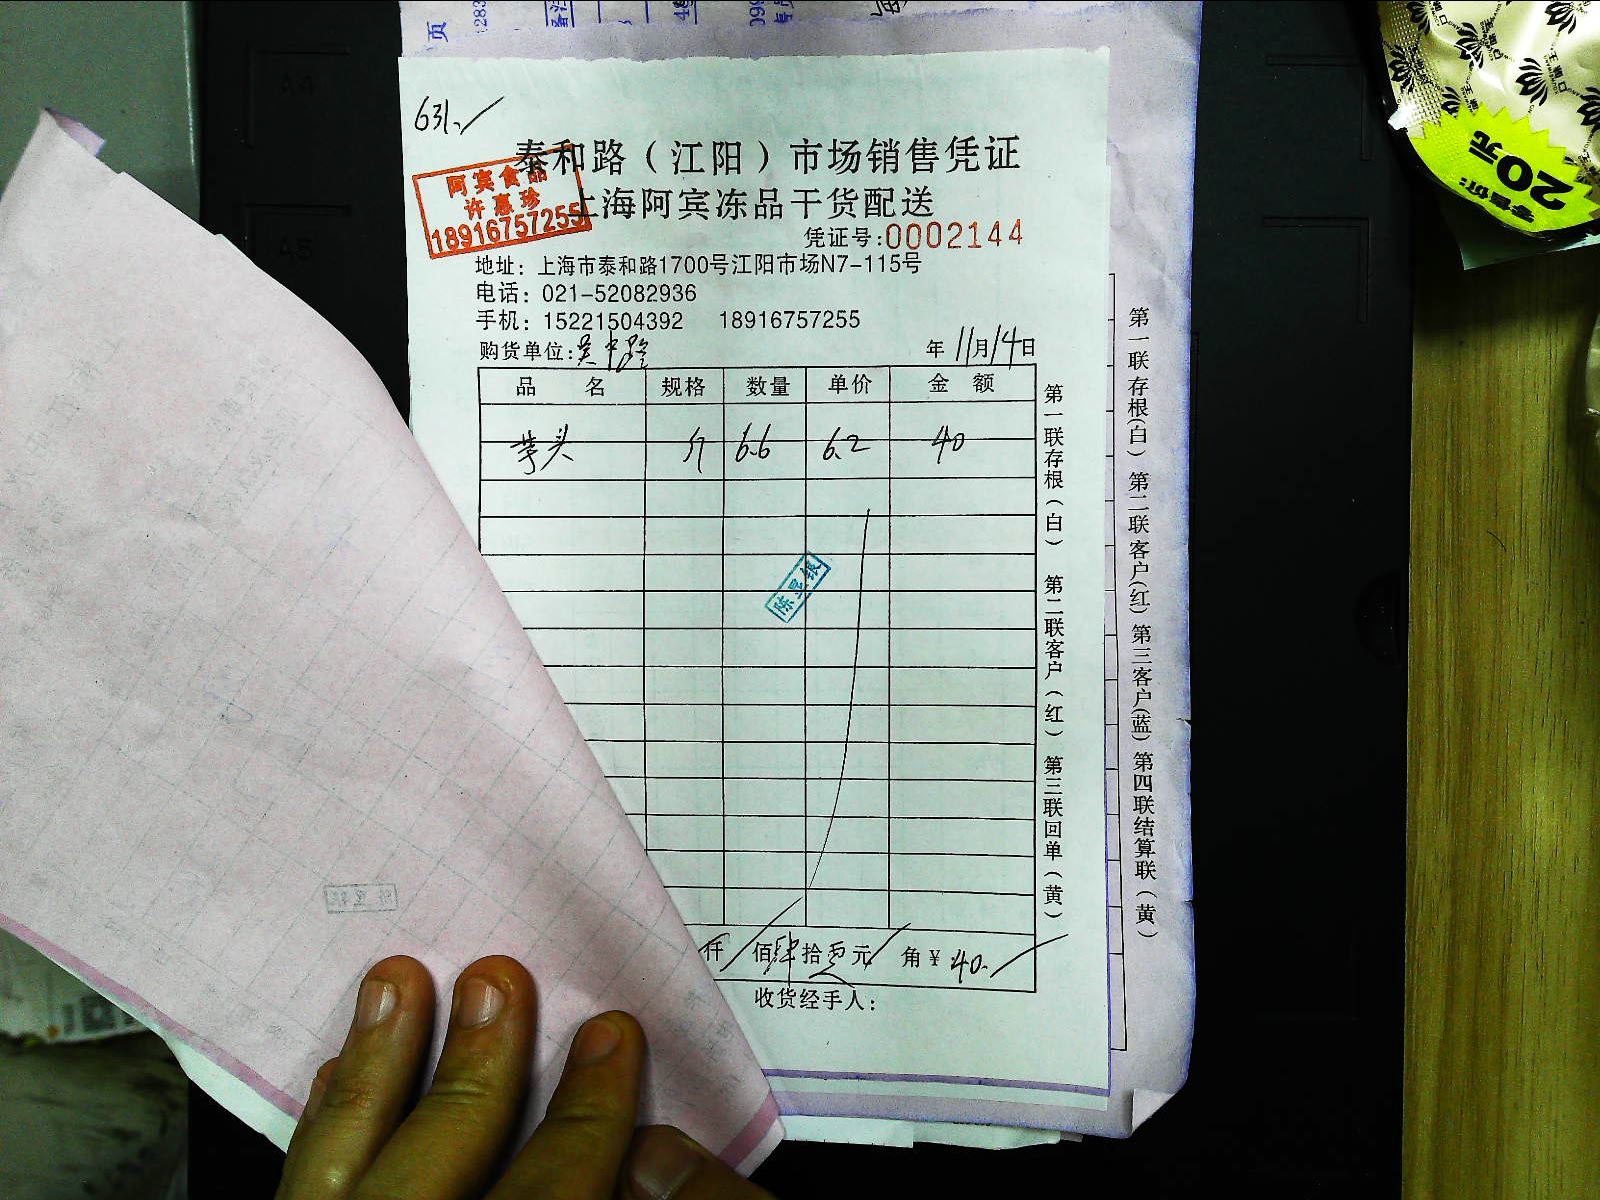 631.
泰和路（江阳）市场销售凭证
上海阿宾冻品干货配送
阿宾食品
许惠珍
18916757255
凭证号:0002144
地址：上海市泰和路1700号江阳市场N7-115号
电话：021-52082936
手机：15221504392 18916757255
购货单位:吴中路 年11月14日
品名 规格 数量 单价 金额
芋头 斤 6.6 6.2 40
陈显银
仟 佰肆拾零元 角￥40.
收货经手人：
第一联存根（白） 第二联客户（红） 第三联回单（黄）
第一联存根(白) 第二联客户(红) 第三客户(蓝) 第四联结算联（黄）
页
零售价:
20元